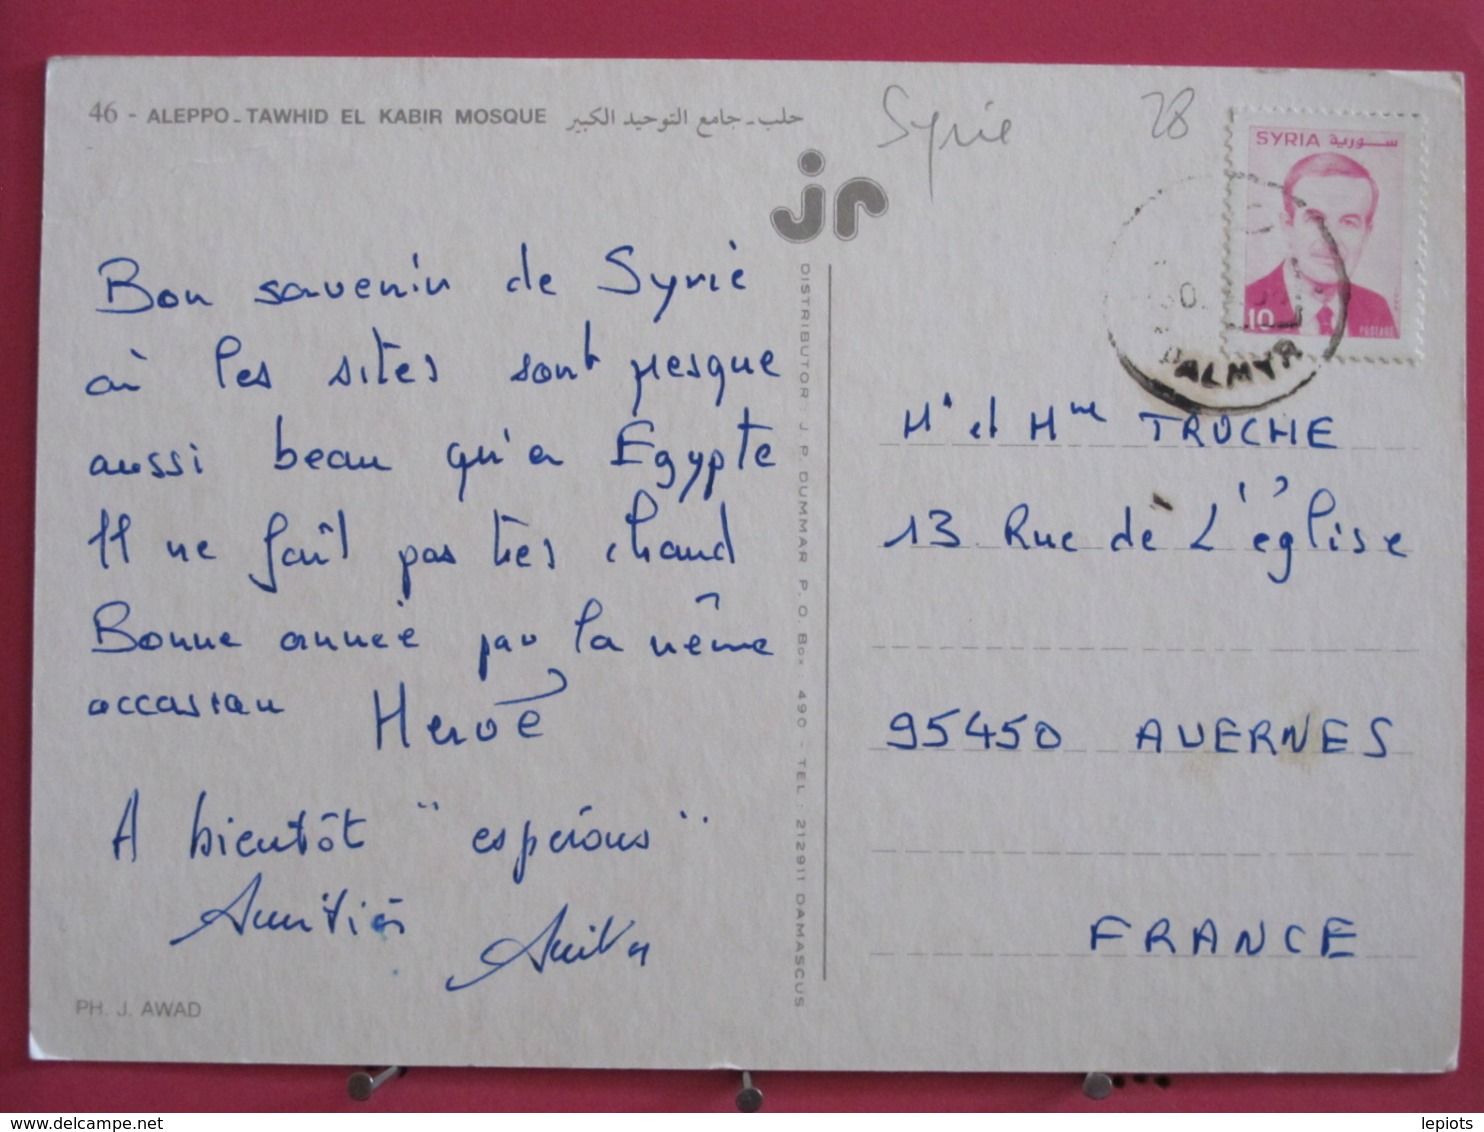 46 - ALEPPO - TAWHID EL KABIR MOSQUE حلب - جامع التوحيد الكبير
Syrie
28
SYRIA سورية
10
POSTAGE
PALMYR
jp
Bon souvenir de Syrie
où les sites sont presque
aussi beau qu'en Egypte
Il ne fait pas très chaud
Bonne année par la même
occasion Hervé
A bientôt "espérons"
Amitiés
DISTRIBUTOR J. P. DUMMAR P. O. Box. 490 - TEL. 212911 DAMASCUS
Mr et Mme TRUCHE
13 Rue de L'église
95450 AVERNES
FRANCE
PH. J. AWAD
delcampe.net
lepiots